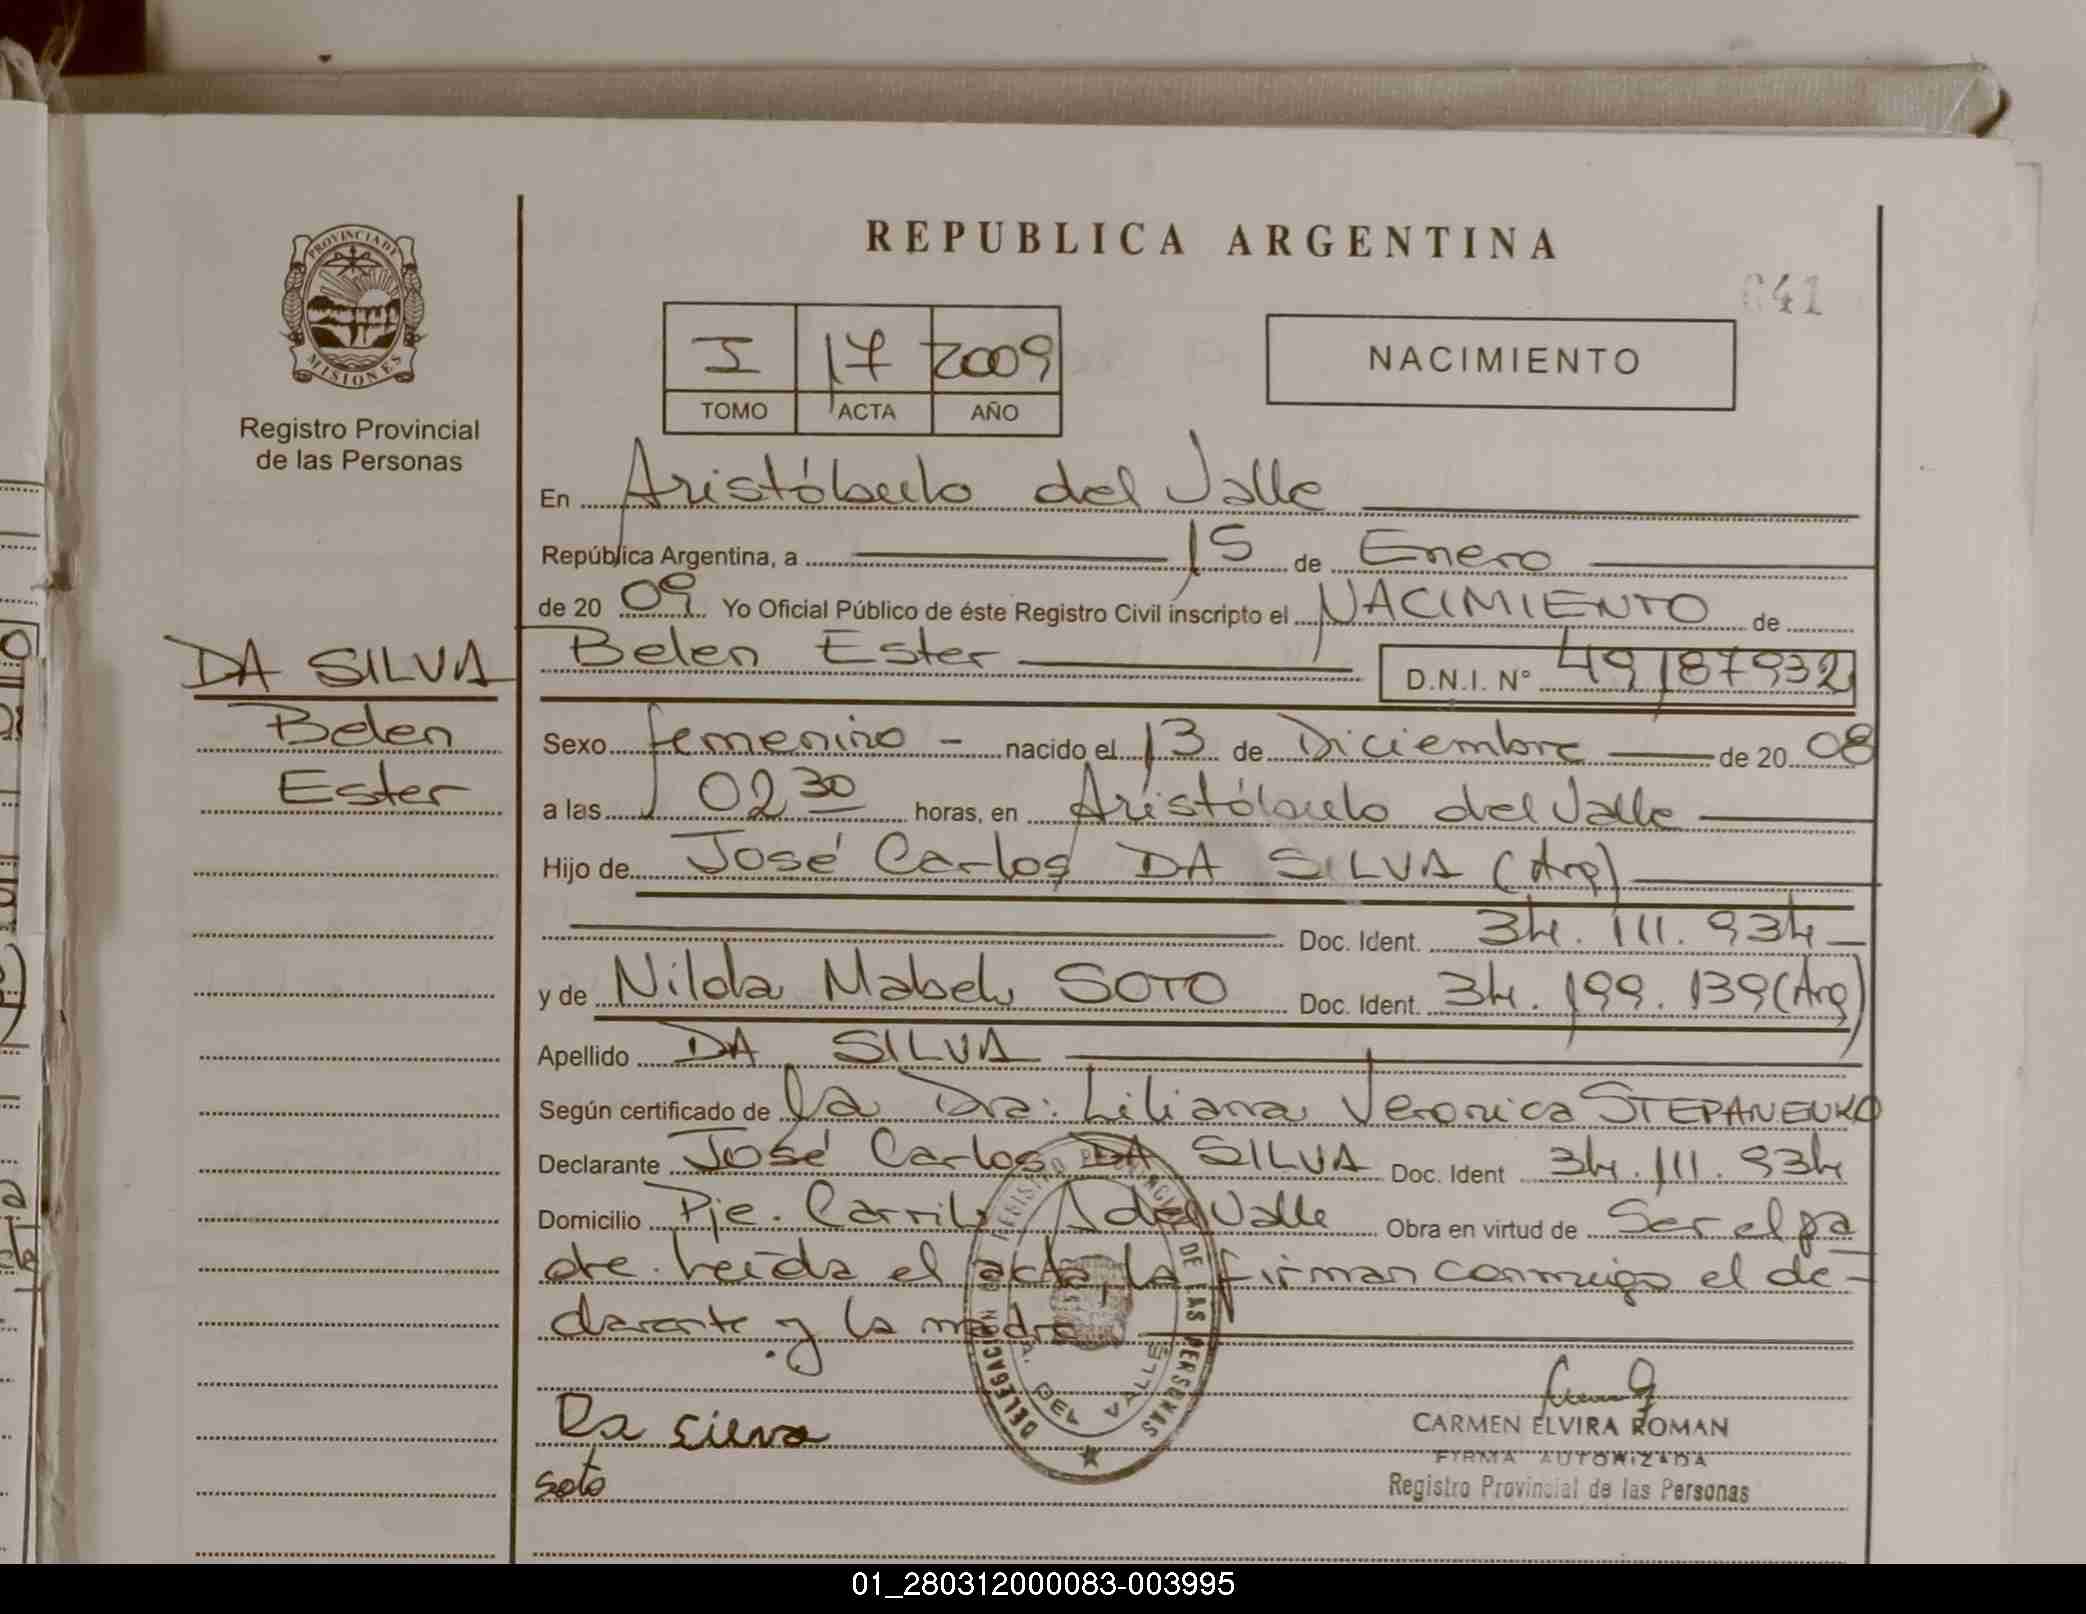 REPUBLICA ARGENTINA
041
PROVINCIA DE
MISIONES
Registro Provincial
de las Personas
I 17 2009
TOMO ACTA AÑO
NACIMIENTO
En Aristóbulo del Valle
República Argentina, a 15 de Enero
de 20 09 Yo Oficial Público de éste Registro Civil inscripto el NACIMIENTO de
DA SILVA
Belen
Ester
Belen Ester D.N.I. N° 49187932
Sexo femenino - nacido el 13 de Diciembre de 20 08
a las 02 30 horas, en Aristóbulo del Valle
Hijo de José Carlos DA SILVA (Arg)
Doc. Ident. 34.111.934
y de Nilda Mabel SOTO Doc. Ident. 34.199.139 (Arg)
Apellido DA SILVA
Según certificado de la Dra: Liliana Veronica STEPANENKO
Declarante José Carlos DA SILVA Doc. Ident 34.111.934
Domicilio Pje. Carrillo A del Valle Obra en virtud de Ser el pa
dre. Leída el acta, la firman conmigo el de-
clarante y la madre
DELEGACION REGISTRO PROVINCIAL DE LAS PERSONAS
A. DEL VALLE
Da Silva
soto
CARMEN ELVIRA ROMAN
FIRMA AUTORIZADA
Registro Provincial de las Personas
01_280312000083-003995